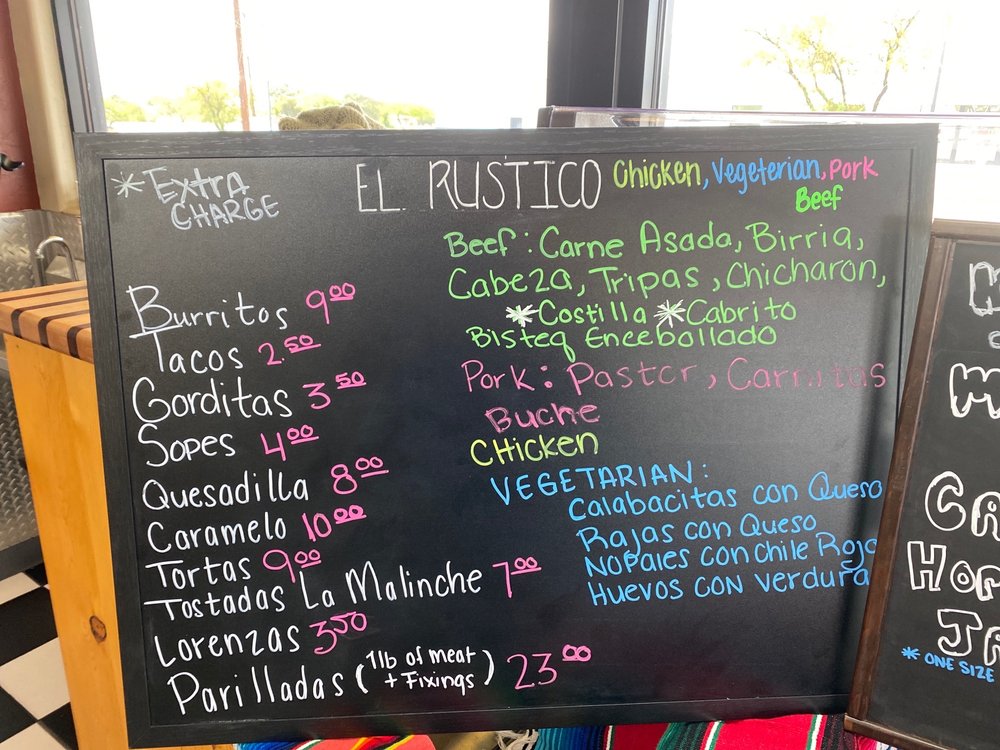 * Extra
CHARGE
EL RUSTICO
Chicken, Vegeterian, Pork
Beef
Burritos 9.00
Tacos 2.50
Gorditas 3.50
Sopes 4.00
Quesadilla 8.00
Caramelo 10.00
Tortas 9.00
Tostadas La Malinche 7.00
Lorenzas 3.50
Parilladas (1lb of meat + Fixings) 23.00
Beef: Carne Asada, Birria,
Cabeza, Tripas, Chicharon,
*Costilla *Cabrito
Bisteq Encebollado
Pork: Pastor, Carnitas
Buche
CHICKEN
VEGETARIAN:
Calabacitas con Queso
Rajas con Queso
Nopales con Chile Rojo
Huevos con verdura
* ONE SIZE